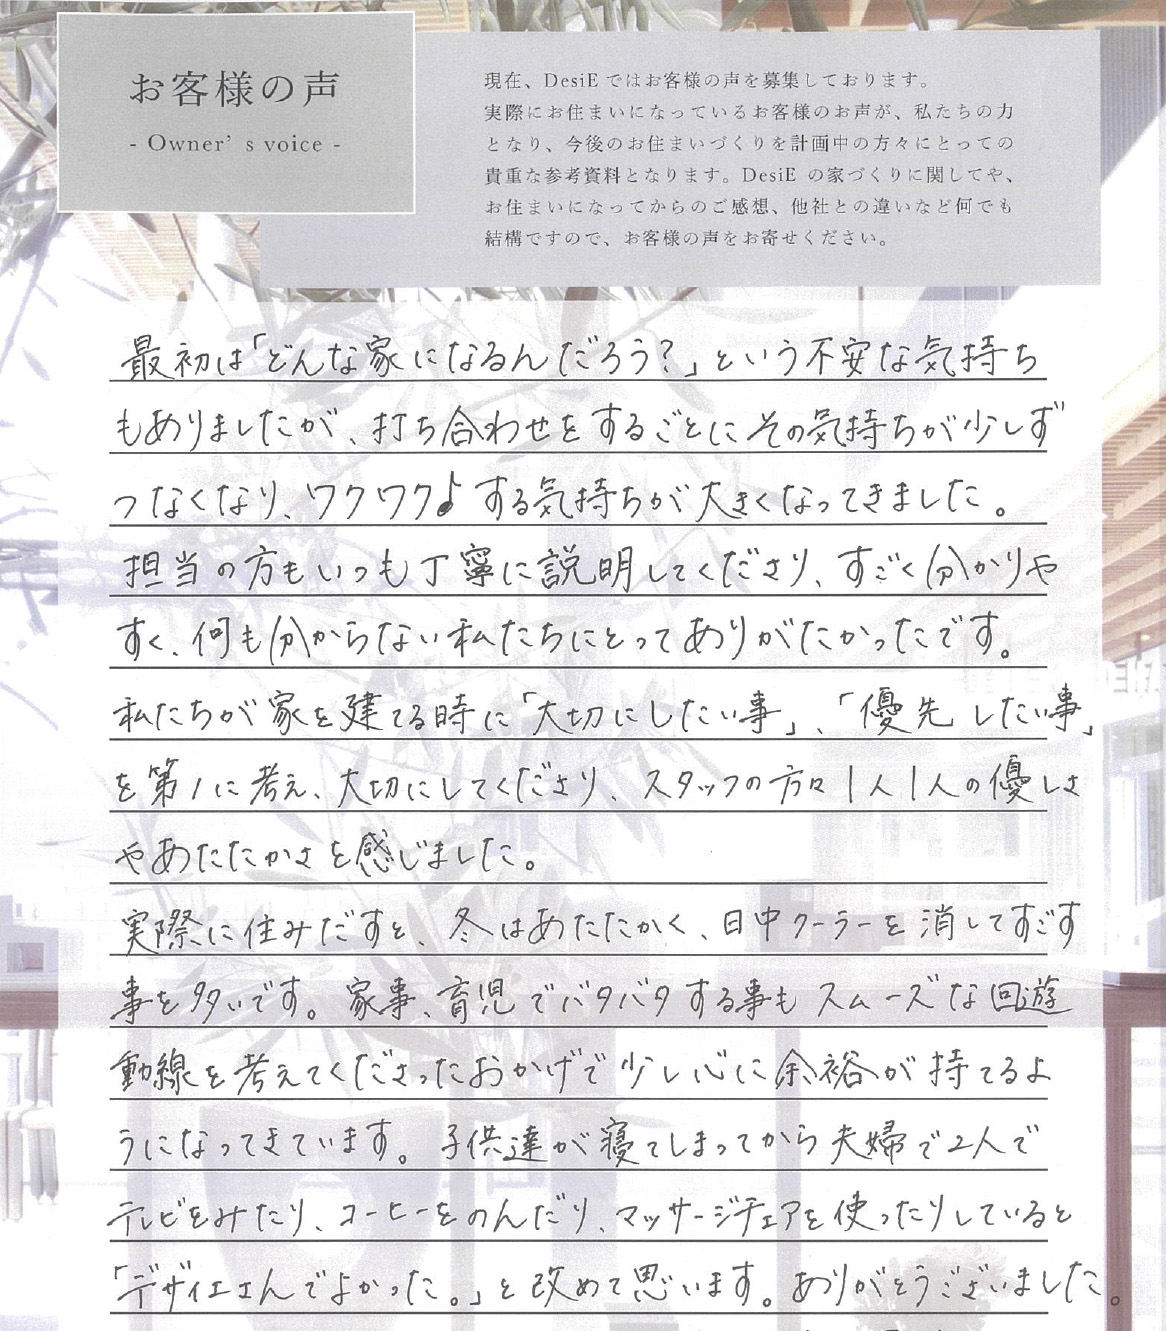 お客様の声
- Owner's voice -
現在、DesiE ではお客様の声を募集しております。
実際にお住まいになっているお客様のお声が、私たちの力
となり、今後のお住まいづくりを計画中の方々にとっての
貴重な参考資料となります。DesiE の家づくりに関してや、
お住まいになってからのご感想、他社との違いなど何でも
結構ですので、お客様の声をお寄せください。
最初は「どんな家になるんだろう?」という不安な気持ち
もありましたが、打ち合わせをするごとにその気持ちが少しず
つなくなり、ワクワク♪する気持ちが大きくなってきました。
担当の方もいつも丁寧に説明してくださり、すごく分かりや
すく、何も分からない私たちにとってありがたかったです。
私たちが家を建てる時に「大切にしたい事」、「優先したい事」
を第1に考え、大切にしてくださり、スタッフの方々1人1人の優しさ
やあたたかさを感じました。
実際に住みだすと、冬はあたたかく、日中クーラーを消してすごす
事を多いです。家事、育児でバタバタする事もスムーズな回遊
動線を考えてくださったおかげで少し心に余裕が持てるよ
うになってきています。子供達が寝てしまってから夫婦で2人で
テレビをみたり、コーヒーをのんだり、マッサージチェアを使ったりしていると
「デザイエさんでよかった。」と改めて思います。ありがとうございました。